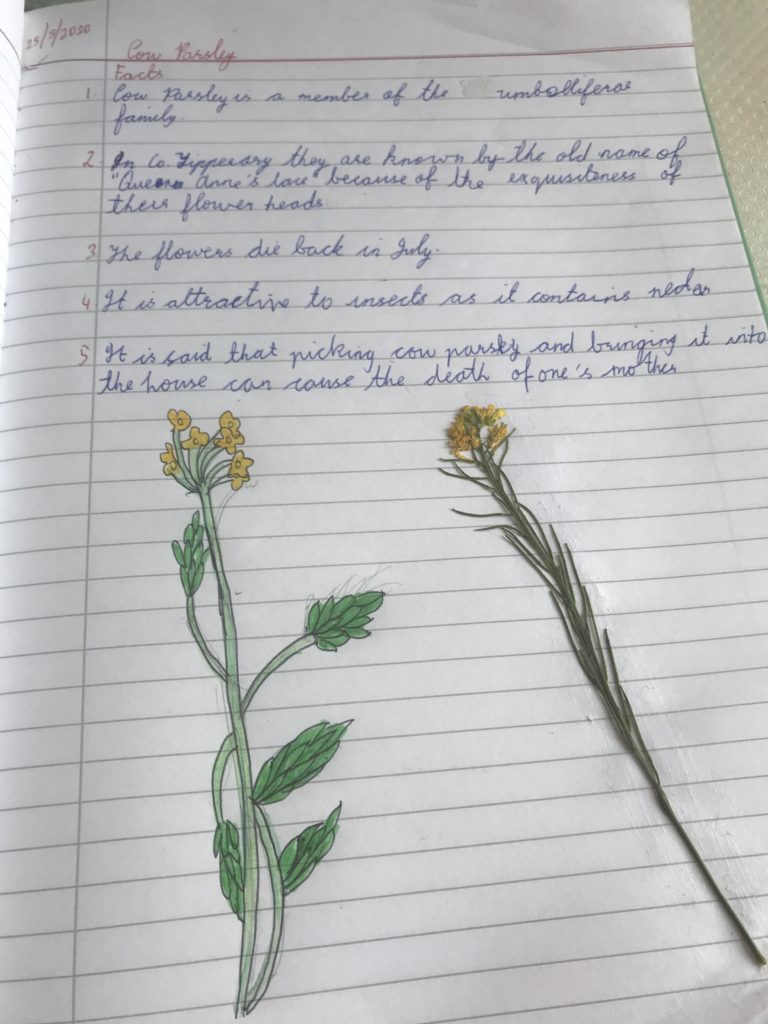 25/5/2020
Cow Parsley
Facts
1. Cow Parsley is a member of the umbolliferae
family.
2. In Co. Tipperary they are known by the old name of
"Queen Anne's lace" because of the exquisiteness of
theis flower heads
3. The flowers die back in July.
4 It is attractive to insects as it contains nectar
5 It is said that picking cow parsley and bringing it into
the house can cause the death of one's mother